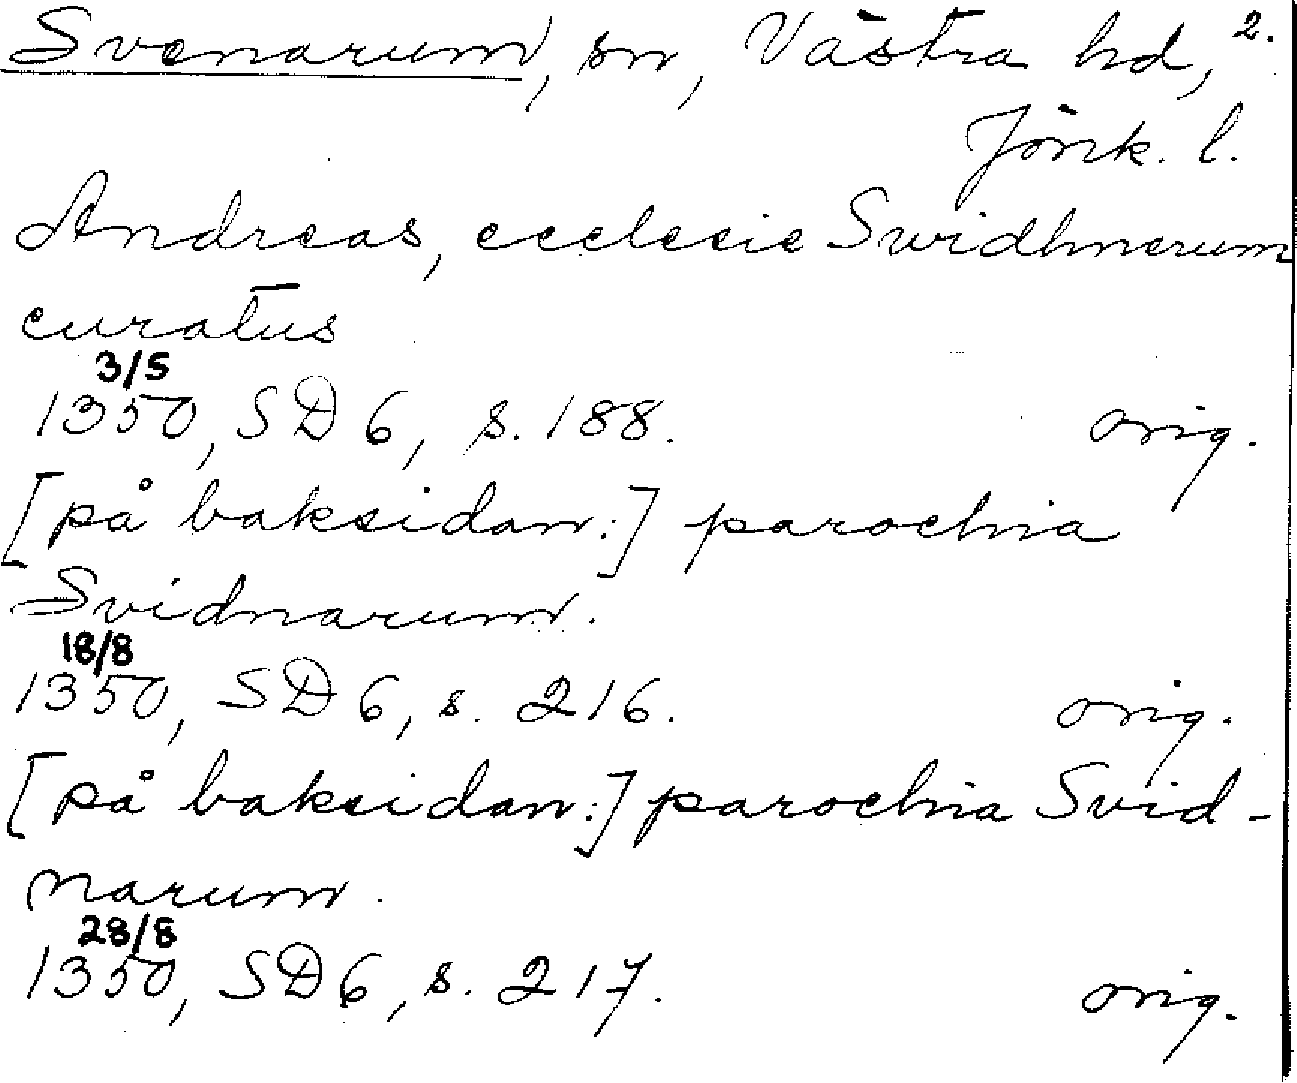 Svenarum, sn, Västra hd, 2.
Jönk. l.
Andreas, ecclesie Swidhnerum
curatus
3/5
1350, SD 6, s. 188. orig.
[på baksidan:] parochia
Svidnarum.
18/8
1350, SD 6, s. 216. orig.
[på baksidan:] parochia Svid-
narum.
28/8
1350, SD 6, s. 217. orig.